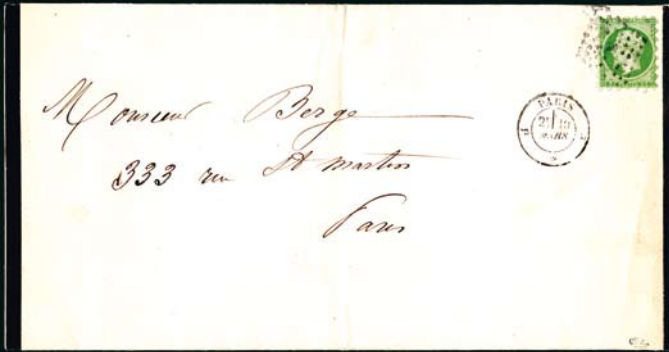 Monsieur Berge
333 rue St martin
Paris
PARIS
MARS